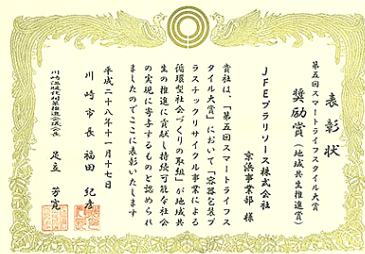 表彰状
第五回スマートライフスタイル大賞
奨励賞(地域共生推進賞)
JFEプラリソース株式会社
京浜事業部 様
貴社は、「第五回スマートライフス
タイル大賞」において「容器包装プ
ラスチックリサイクル事業による
循環型社会づくりの取組」が地域共
生の推進に貢献し持続可能な社会
の実現に寄与するものと認められ
ましたのでここに表彰いたします
平成二十八年十一月十七日
川崎市長 福田 紀彦
川崎温暖化対策推進会議会長
足立 芳寛